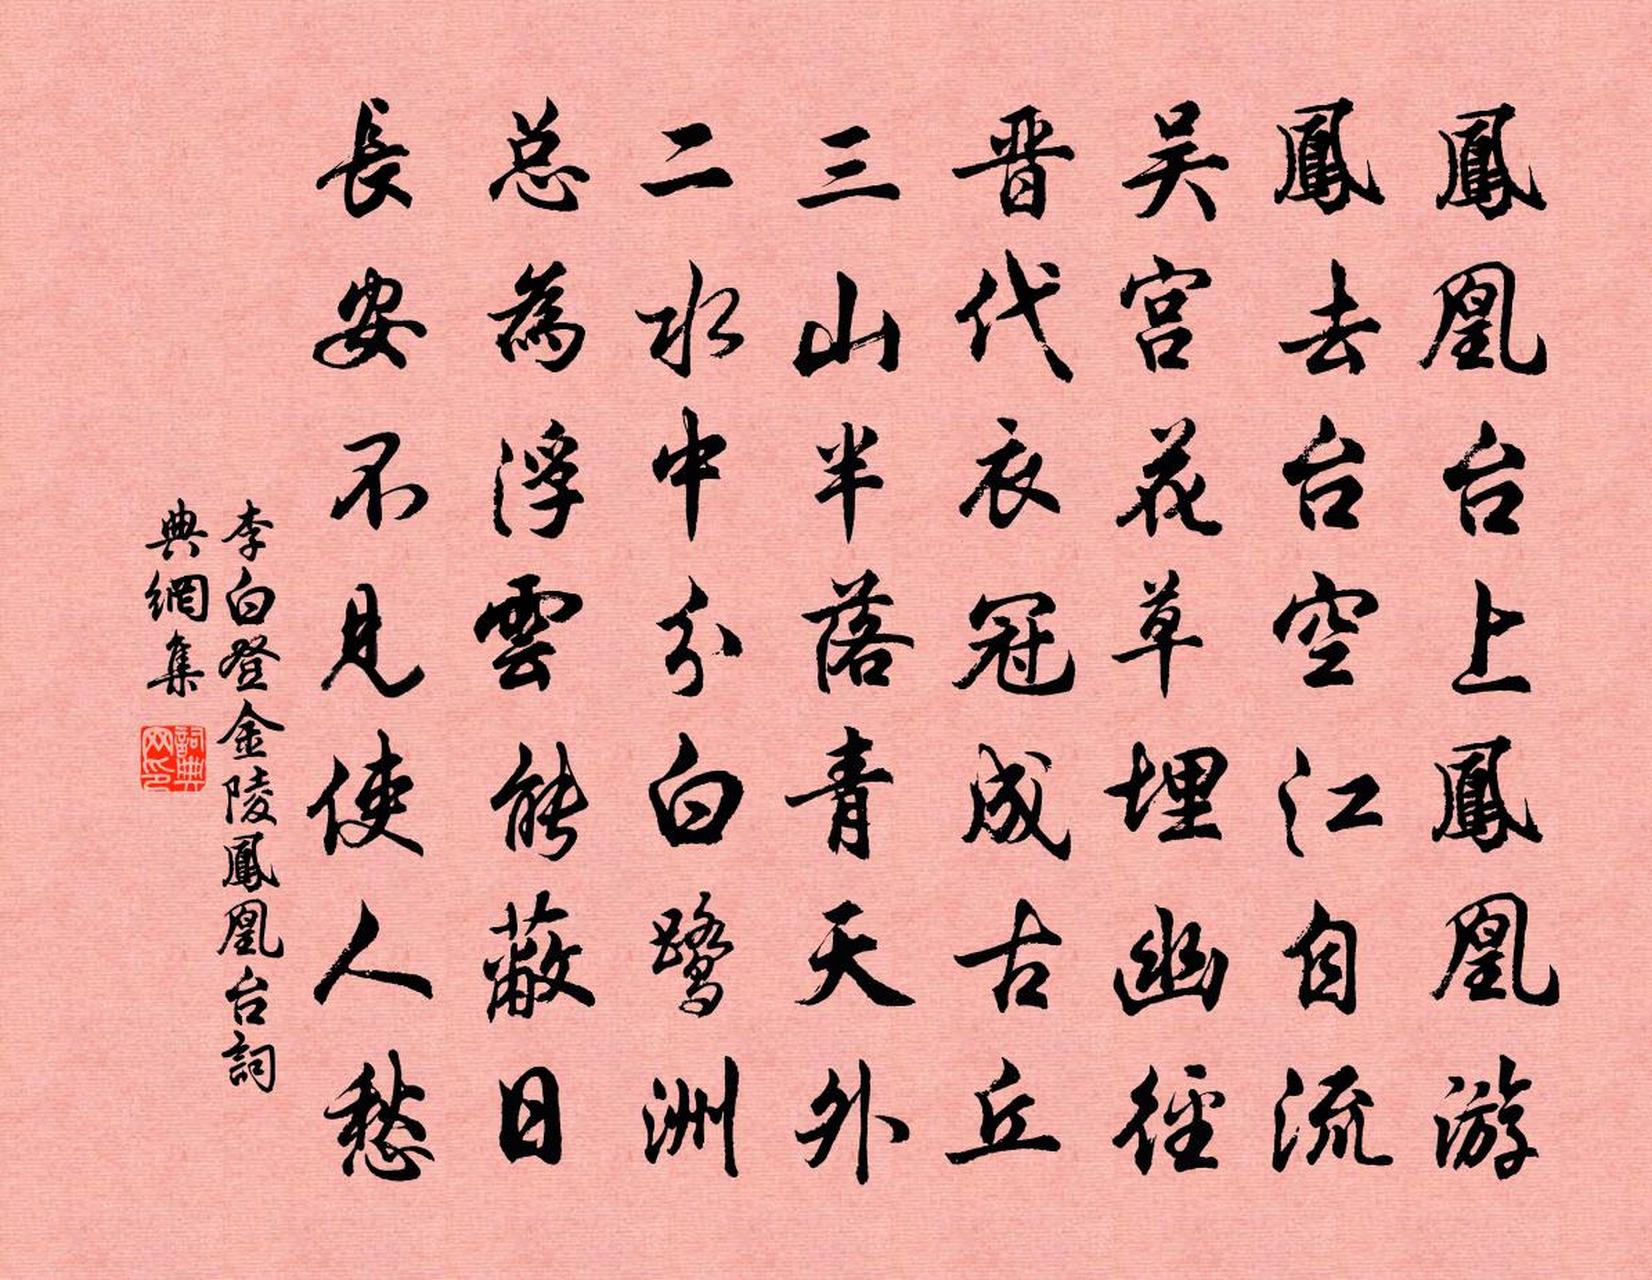 鳳凰台上鳳凰游
鳳去台空江自流
吴宫花草埋幽徑
晋代衣冠成古丘
三山半落青天外
二水中分白鹭洲
总為浮雲能蔽日
長安不見使人愁
李白登金陵鳳凰台詞
典網集
詞典
网印